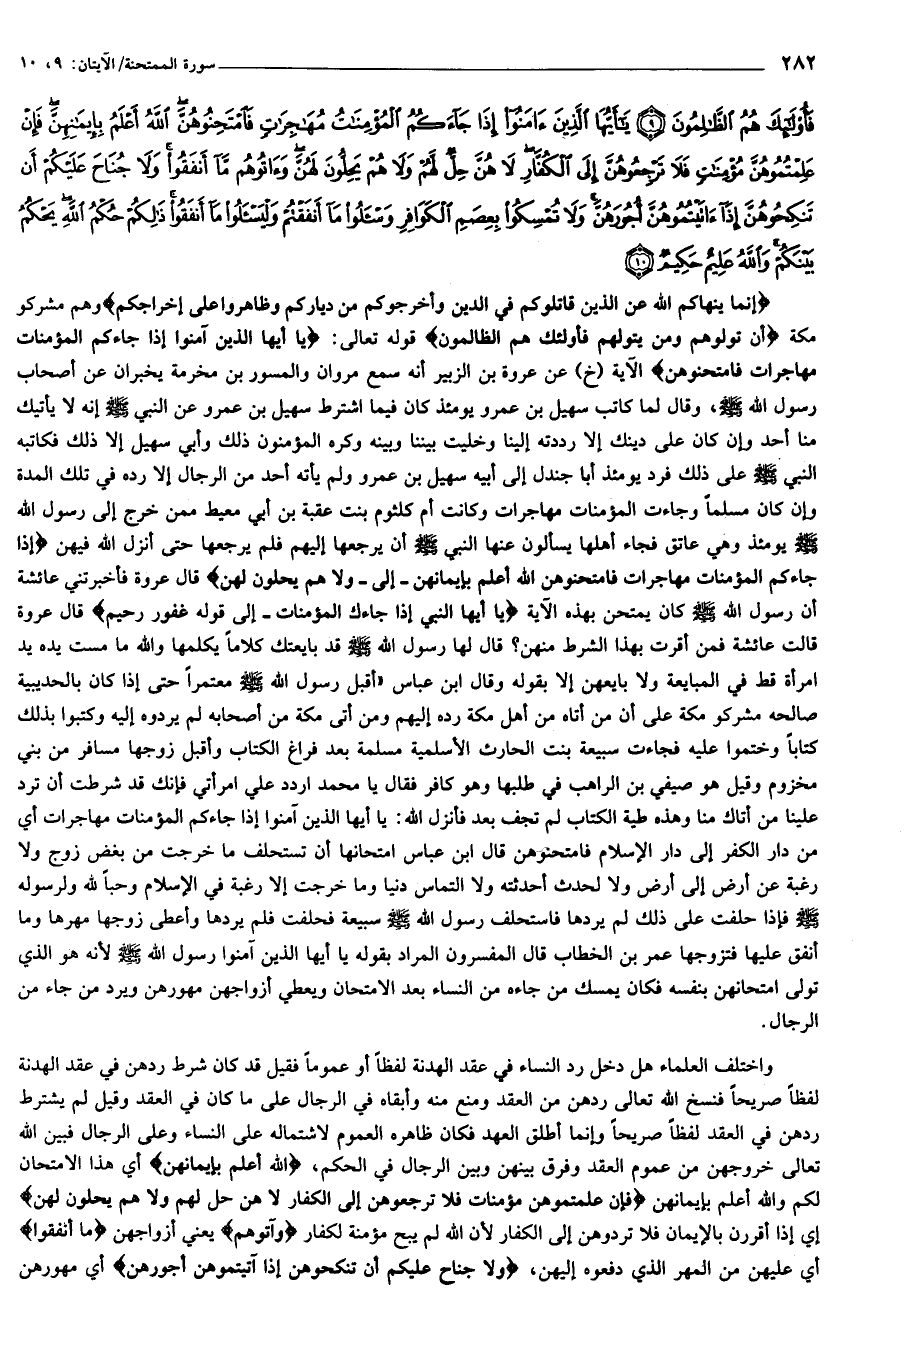 ٢٨٢ سورة الممتحنة/ الآيتان: ٩، ١٠
فَأُوْلَٰٓئِكَ هُمُ ٱلظَّٰلِمُونَ ۝٩ يَٰٓأَيُّهَا ٱلَّذِينَ ءَامَنُوٓاْ إِذَا جَآءَكُمُ ٱلْمُؤْمِنَٰتُ مُهَٰجِرَٰتٍ فَٱمْتَحِنُوهُنَّۖ ٱللَّهُ أَعْلَمُ بِإِيمَٰنِهِنَّۖ فَإِنْ
عَلِمْتُمُوهُنَّ مُؤْمِنَٰتٍ فَلَا تَرْجِعُوهُنَّ إِلَى ٱلْكُفَّارِۖ لَا هُنَّ حِلٌّ لَّهُمْ وَلَا هُمْ يَحِلُّونَ لَهُنَّۖ وَءَاتُوهُم مَّآ أَنفَقُواْۚ وَلَا جُنَاحَ عَلَيْكُمْ أَن
تَنكِحُوهُنَّ إِذَآ ءَاتَيْتُمُوهُنَّ أُجُورَهُنَّۚ وَلَا تُمْسِكُواْ بِعِصَمِ ٱلْكَوَافِرِ وَسْـَٔلُواْ مَآ أَنفَقْتُمْ وَلْيَسْـَٔلُواْ مَآ أَنفَقُواْۚ ذَٰلِكُمْ حُكْمُ ٱللَّهِۖ يَحْكُمُ
بَيْنَكُمْۚ وَٱللَّهُ عَلِيمٌ حَكِيمٌ ۝١٠
﴿إنما ينهاكم الله عن الذين قاتلوكم في الدين وأخرجوكم من دياركم وظاهروا على إخراجكم﴾ وهم مشركو
مكة ﴿أن تولوهم ومن يتولهم فأولئك هم الظالمون﴾ قوله تعالى: ﴿يا أيها الذين آمنوا إذا جاءكم المؤمنات
مهاجرات فامتحنوهن﴾ الآية (خ) عن عروة بن الزبير أنه سمع مروان والمسور بن مخرمة يخبران عن أصحاب
رسول الله ﷺ، وقال لما كاتب سهيل بن عمرو يومئذ كان فيما اشترط سهيل بن عمرو عن النبي ﷺ إنه لا يأتيك
منا أحد وإن كان على دينك إلا رددته إلينا وخليت بيننا وبينه وكره المؤمنون ذلك وأبي سهيل إلا ذلك فكاتبه
النبي ﷺ على ذلك فرد يومئذ أبا جندل إلى أبيه سهيل بن عمرو ولم يأته أحد من الرجال إلا رده في تلك المدة
وإن كان مسلماً وجاءت المؤمنات مهاجرات وكانت أم كلثوم بنت عقبة بن أبي معيط ممن خرج إلى رسول الله
ﷺ يومئذ وهي عاتق فجاء أهلها يسألون عنها النبي ﷺ أن يرجعها إليهم فلم يرجعها حتى أنزل الله فيهن ﴿إذا
جاءكم المؤمنات مهاجرات فامتحنوهن الله أعلم بإيمانهن ـ إلى ـ ولا هم يحلون لهن﴾ قال عروة فأخبرتني عائشة
أن رسول الله ﷺ كان يمتحن بهذه الآية ﴿يا أيها النبي إذا جاءك المؤمنات ـ إلى قوله غفور رحيم﴾ قال عروة
قالت عائشة فمن أقرت بهذا الشرط منهن؟ قال لها رسول الله ﷺ قد بايعتك كلاماً يكلمها والله ما مست يده يد
امرأة قط في المبايعة ولا بايعهن إلا بقوله وقال ابن عباس «أقبل رسول الله ﷺ معتمراً حتى إذا كان بالحديبية
صالحه مشركو مكة على أن من أتاه من أهل مكة رده إليهم ومن أتى مكة من أصحابه لم يردوه إليه وكتبوا بذلك
كتاباً وختموا عليه فجاءت سبيعة بنت الحارث الأسلمية مسلمة بعد فراغ الكتاب وأقبل زوجها مسافر من بني
مخزوم وقيل هو صيفي بن الراهب في طلبها وهو كافر فقال يا محمد اردد علي امرأتي فإنك قد شرطت أن ترد
علينا من أتاك منا وهذه طية الكتاب لم تجف بعد فأنزل الله: يا أيها الذين آمنوا إذا جاءكم المؤمنات مهاجرات أي
من دار الكفر إلى دار الإسلام فامتحنوهن قال ابن عباس امتحانها أن تستحلف ما خرجت من بغض زوج ولا
رغبة عن أرض إلى أرض ولا لحدث أحدثته ولا التماس دنيا وما خرجت إلا رغبة في الإسلام وحباً لله ولرسوله
ﷺ فإذا حلفت على ذلك لم يردها فاستحلف رسول الله ﷺ سبيعة فحلفت فلم يردها وأعطى زوجها مهرها وما
أنفق عليها فتزوجها عمر بن الخطاب قال المفسرون المراد بقوله يا أيها الذين آمنوا رسول الله ﷺ لأنه هو الذي
تولى امتحانهن بنفسه فكان يمسك من جاءه من النساء بعد الامتحان ويعطي أزواجهن مهورهن ويرد من جاء من
الرجال.
واختلف العلماء هل دخل رد النساء في عقد الهدنة لفظاً أو عموماً فقيل قد كان شرط ردهن في عقد الهدنة
لفظاً صريحاً فنسخ الله تعالى ردهن من العقد ومنع منه وأبقاه في الرجال على ما كان في العقد وقيل لم يشترط
ردهن في العقد لفظاً صريحاً وإنما أطلق العهد فكان ظاهره العموم لاشتماله على النساء وعلى الرجال فبين الله
تعالى خروجهن من عموم العقد وفرق بينهن وبين الرجال في الحكم، ﴿الله أعلم بإيمانهن﴾ أي هذا الامتحان
لكم والله أعلم بإيمانهن ﴿فإن علمتموهن مؤمنات فلا ترجعوهن إلى الكفار لا هن حل لهم ولا هم يحلون لهن﴾
إي إذا أقررن بالإيمان فلا تردوهن إلى الكفار لأن الله لم يبح مؤمنة لكفار ﴿وآتوهم﴾ يعني أزواجهن ﴿ما أنفقوا﴾
أي عليهن من المهر الذي دفعوه إليهن، ﴿ولا جناح عليكم أن تنكحوهن إذا آتيتموهن أجورهن﴾ أي مهورهن